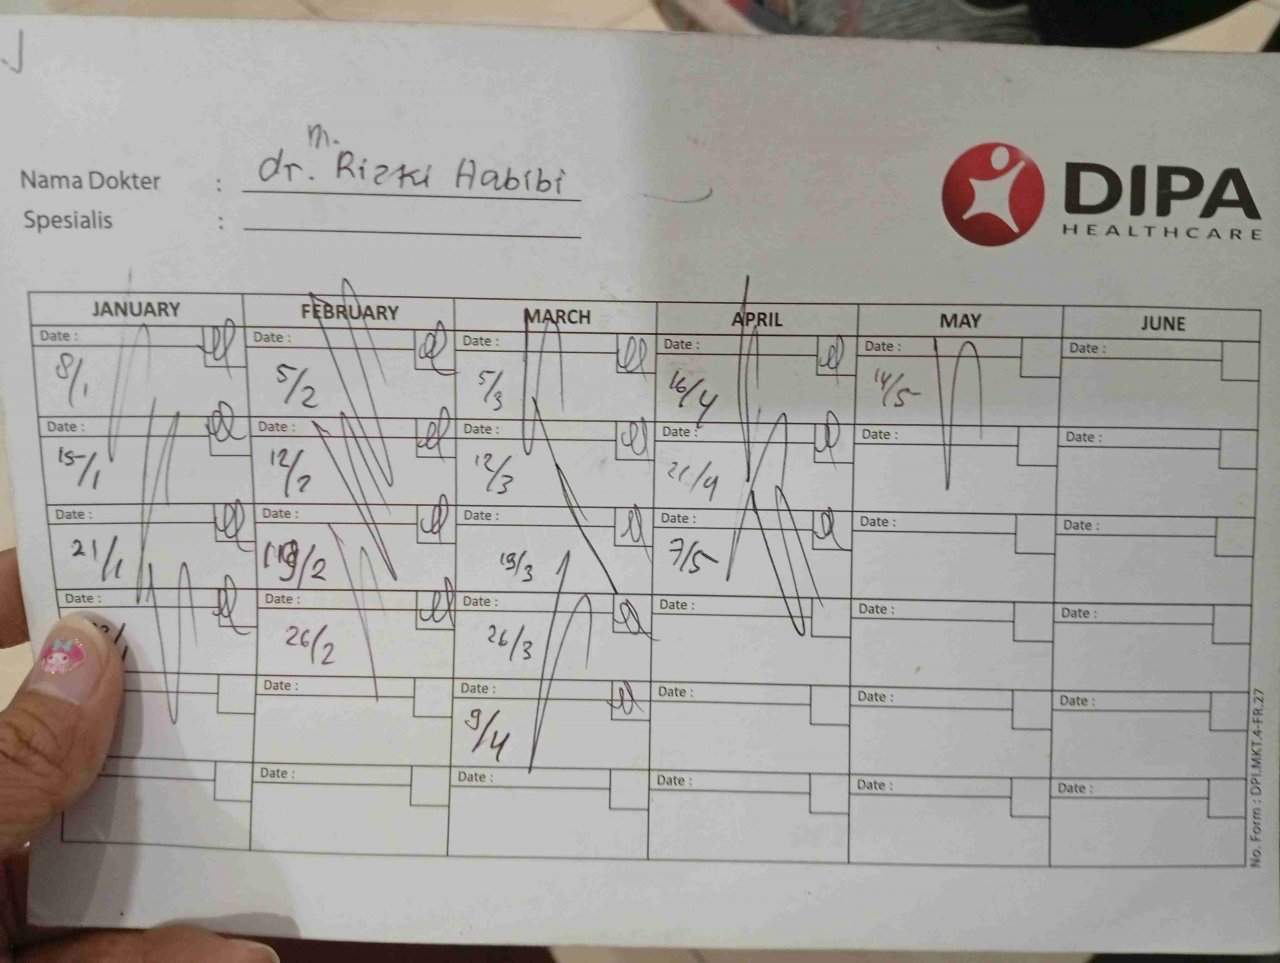 m.
Nama Dokter : dr. Rizki Habibi
Spesialis :
DIPA
HEALTHCARE
JANUARY FEBRUARY MARCH APRIL MAY JUNE
Date : Date : Date : Date : Date : Date :
8/1 5/2 5/3 16/4 14/5
Date : Date : Date : Date : Date : Date :
15/1 12/2 12/3 21/4
Date : Date : Date : Date : Date : Date :
21/1 19/2 19/3 7/5
Date : Date : Date : Date : Date : Date :
26/2 26/3
Date : Date : Date : Date : Date :
9/4
Date : Date : Date : Date : Date :
No. Form : DPI.MKT.4-FR.27